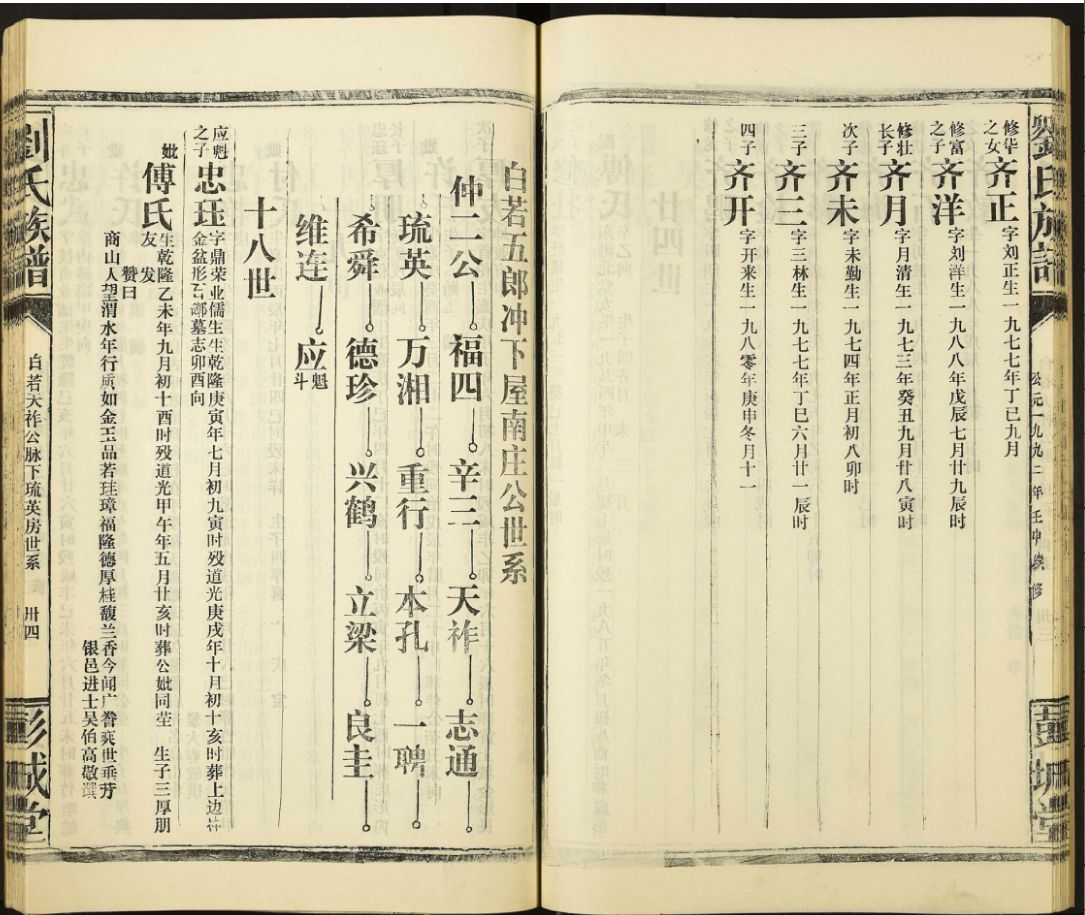 劉氏族譜
公元一九九二年壬申续修
彭城堂
修华之女 齐正 字刘正生一九七七年丁巳九月
修富之子 齐洋 字刘洋生一九八八年戊辰七月廿九辰时
修壮长子 齐月 字月清生一九七三年癸丑九月廿八寅时
次子 齐未 字未勤生一九七四年正月初八卯时
三子 齐三 字三林生一九七七年丁巳六月廿一辰时
四子 齐开 字开来生一九八零年庚申冬月十一
白若五郎冲下屋南庄公世系
仲二公 福四 辛三 天祚 志通
琉英 万湘 重行 本孔 一聘
希舜 德珍 兴鹤 立梁 良圭
维连 应魁斗
十八世
应魁之子 忠珏 字鼎荣业儒生生乾隆庚寅年七月初九寅时殁道光庚戌年十月初十亥时葬上边
金盆形 墓志卯酉向
妣 傅氏 生乾隆乙未年九月初十酉时殁道光甲午年五月廿亥时葬公妣同茔 生子三厚朋
友 发
赞曰
商山人望渭水年行质如金玉品若珪璋福隆德厚桂馥兰香今闻广誉奕世垂芳
银邑进士吴伯高敬撰
劉氏族譜
白若天祚公脉下琉英房世系
卅四
彭城堂